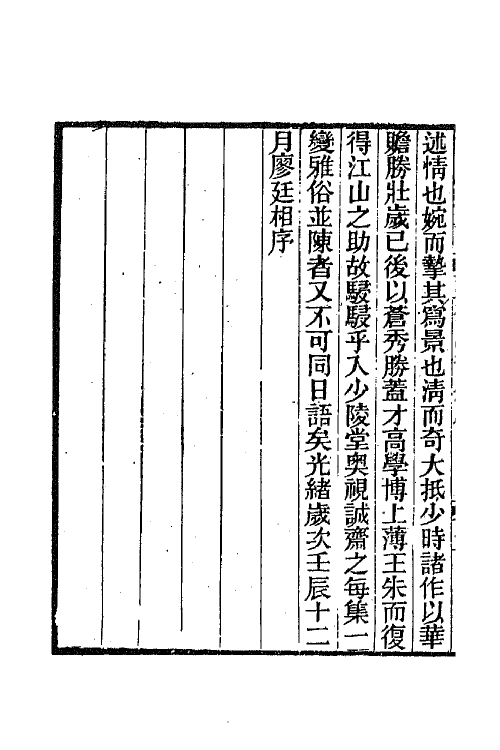 述情也婉而摯其爲景也淸而奇大抵少時諸作以華
贍勝壯歲已後以蒼秀勝蓋才高學博上薄王朱而復
得江山之助故駸駸乎入少陵堂奧視誠齋之每集一
變雅俗並陳者又不可同日語矣光緒歲次壬辰十二
月廖廷相序